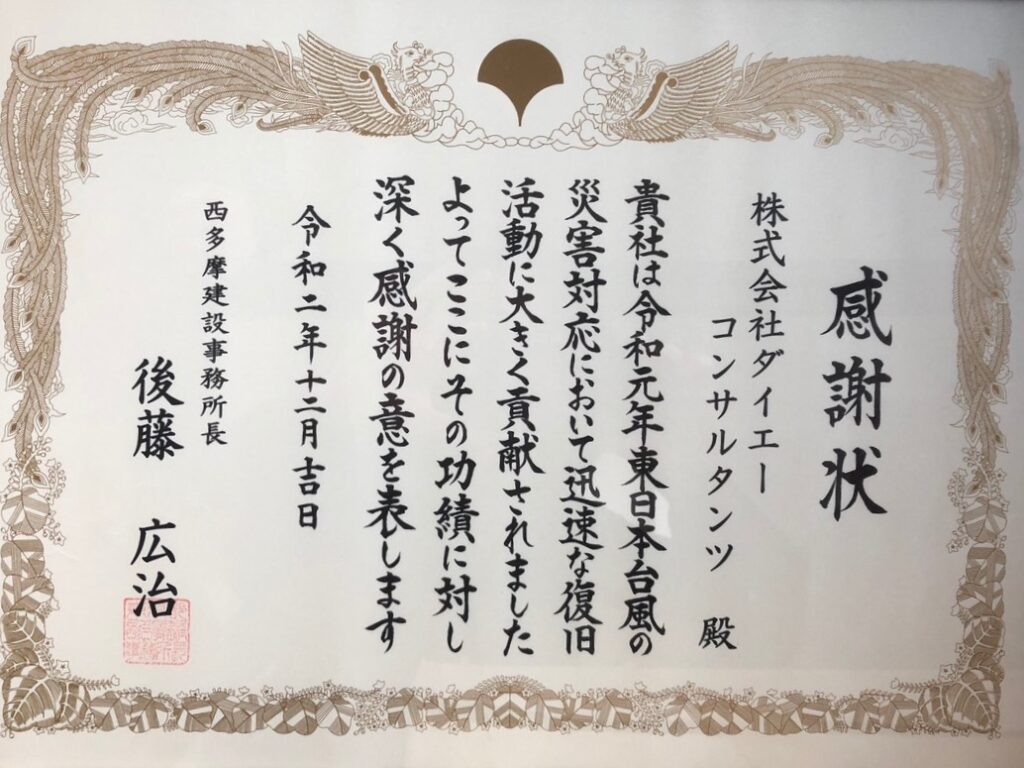 感謝状
株式会社ダイエー
コンサルタンツ 殿
貴社は令和元年東日本台風の
災害対応において迅速な復旧
活動に大きく貢献されました
よってここにその功績に対し
深く感謝の意を表します
令和二年十二月吉日
西多摩建設事務所長
後藤 広治